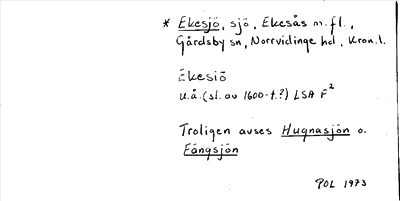 * Ekesjö, sjö, Ekesås m.fl.,
Gårdsby sn, Norrvidinge hd, Kron.l.
Ekesiö
u.å. (sl. av 1600-t.?) LSA F²
Troligen avses Hugnasjön o.
Fängsjön
POL 1973